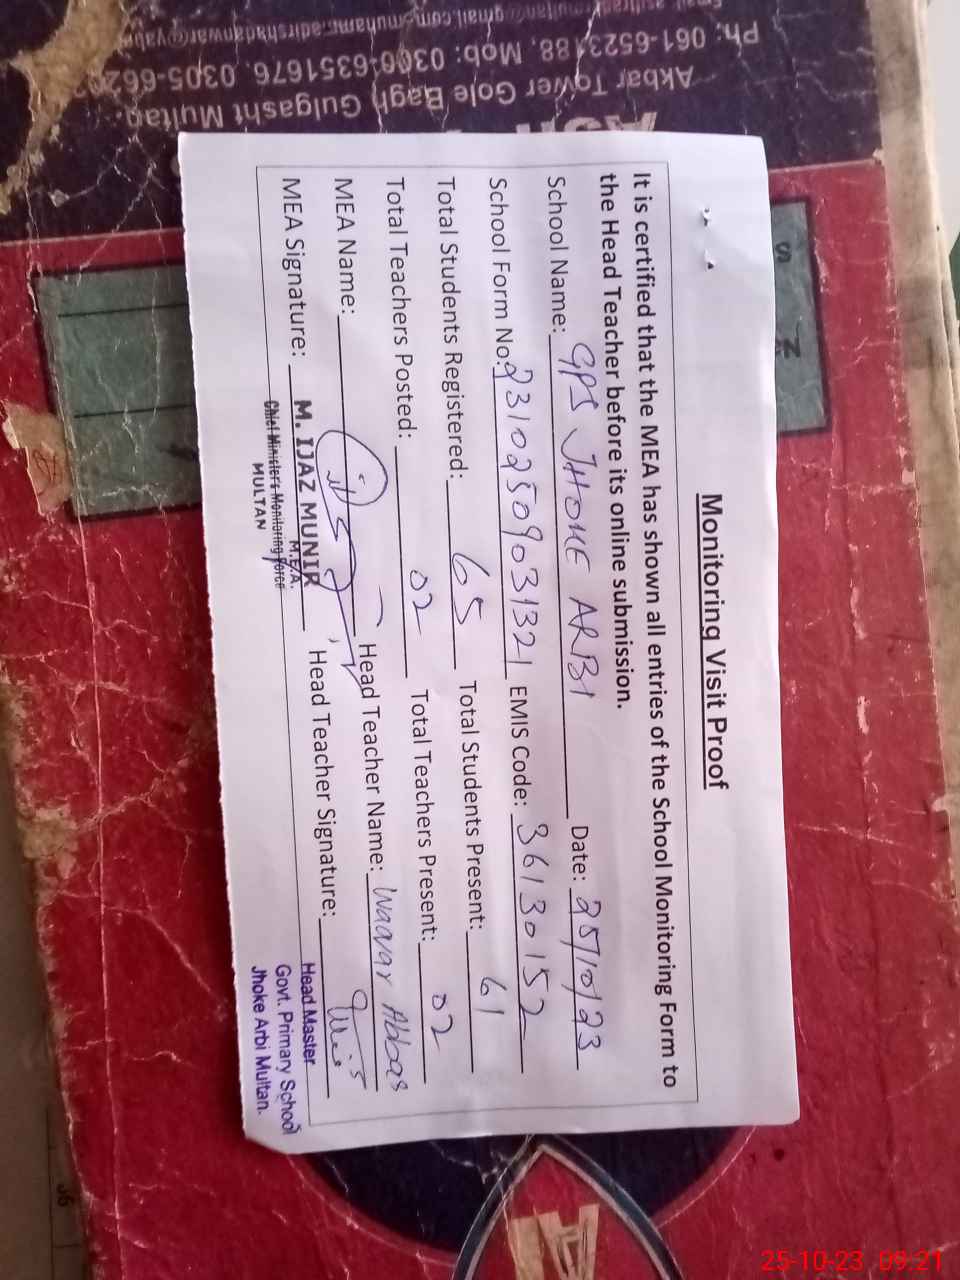 Monitoring Visit Proof
It is certified that the MEA has shown all entries of the School Monitoring Form to
the Head Teacher before its online submission.
School Name: GPS JHOKE ARBI Date: 25/10/23
School Form No: 23102509031321 EMIS Code: 36130152
Total Students Registered: 65 Total Students Present: 61
Total Teachers Posted: 02 Total Teachers Present: 02
MEA Name: Head Teacher Name: Waqar Abbas
MEA Signature: Head Teacher Signature:
M. IJAZ MUNIR
M.E.A.
Chief Ministers Monitoring Force
MULTAN
Head Master
Govt. Primary School
Jhoke Arbi Multan.
Akbar Tower Gole Bagh Gulgasht Multan.
Ph: 061-6523188, Mob: 0300-6351676, 0305-662
25-10-23 09:21